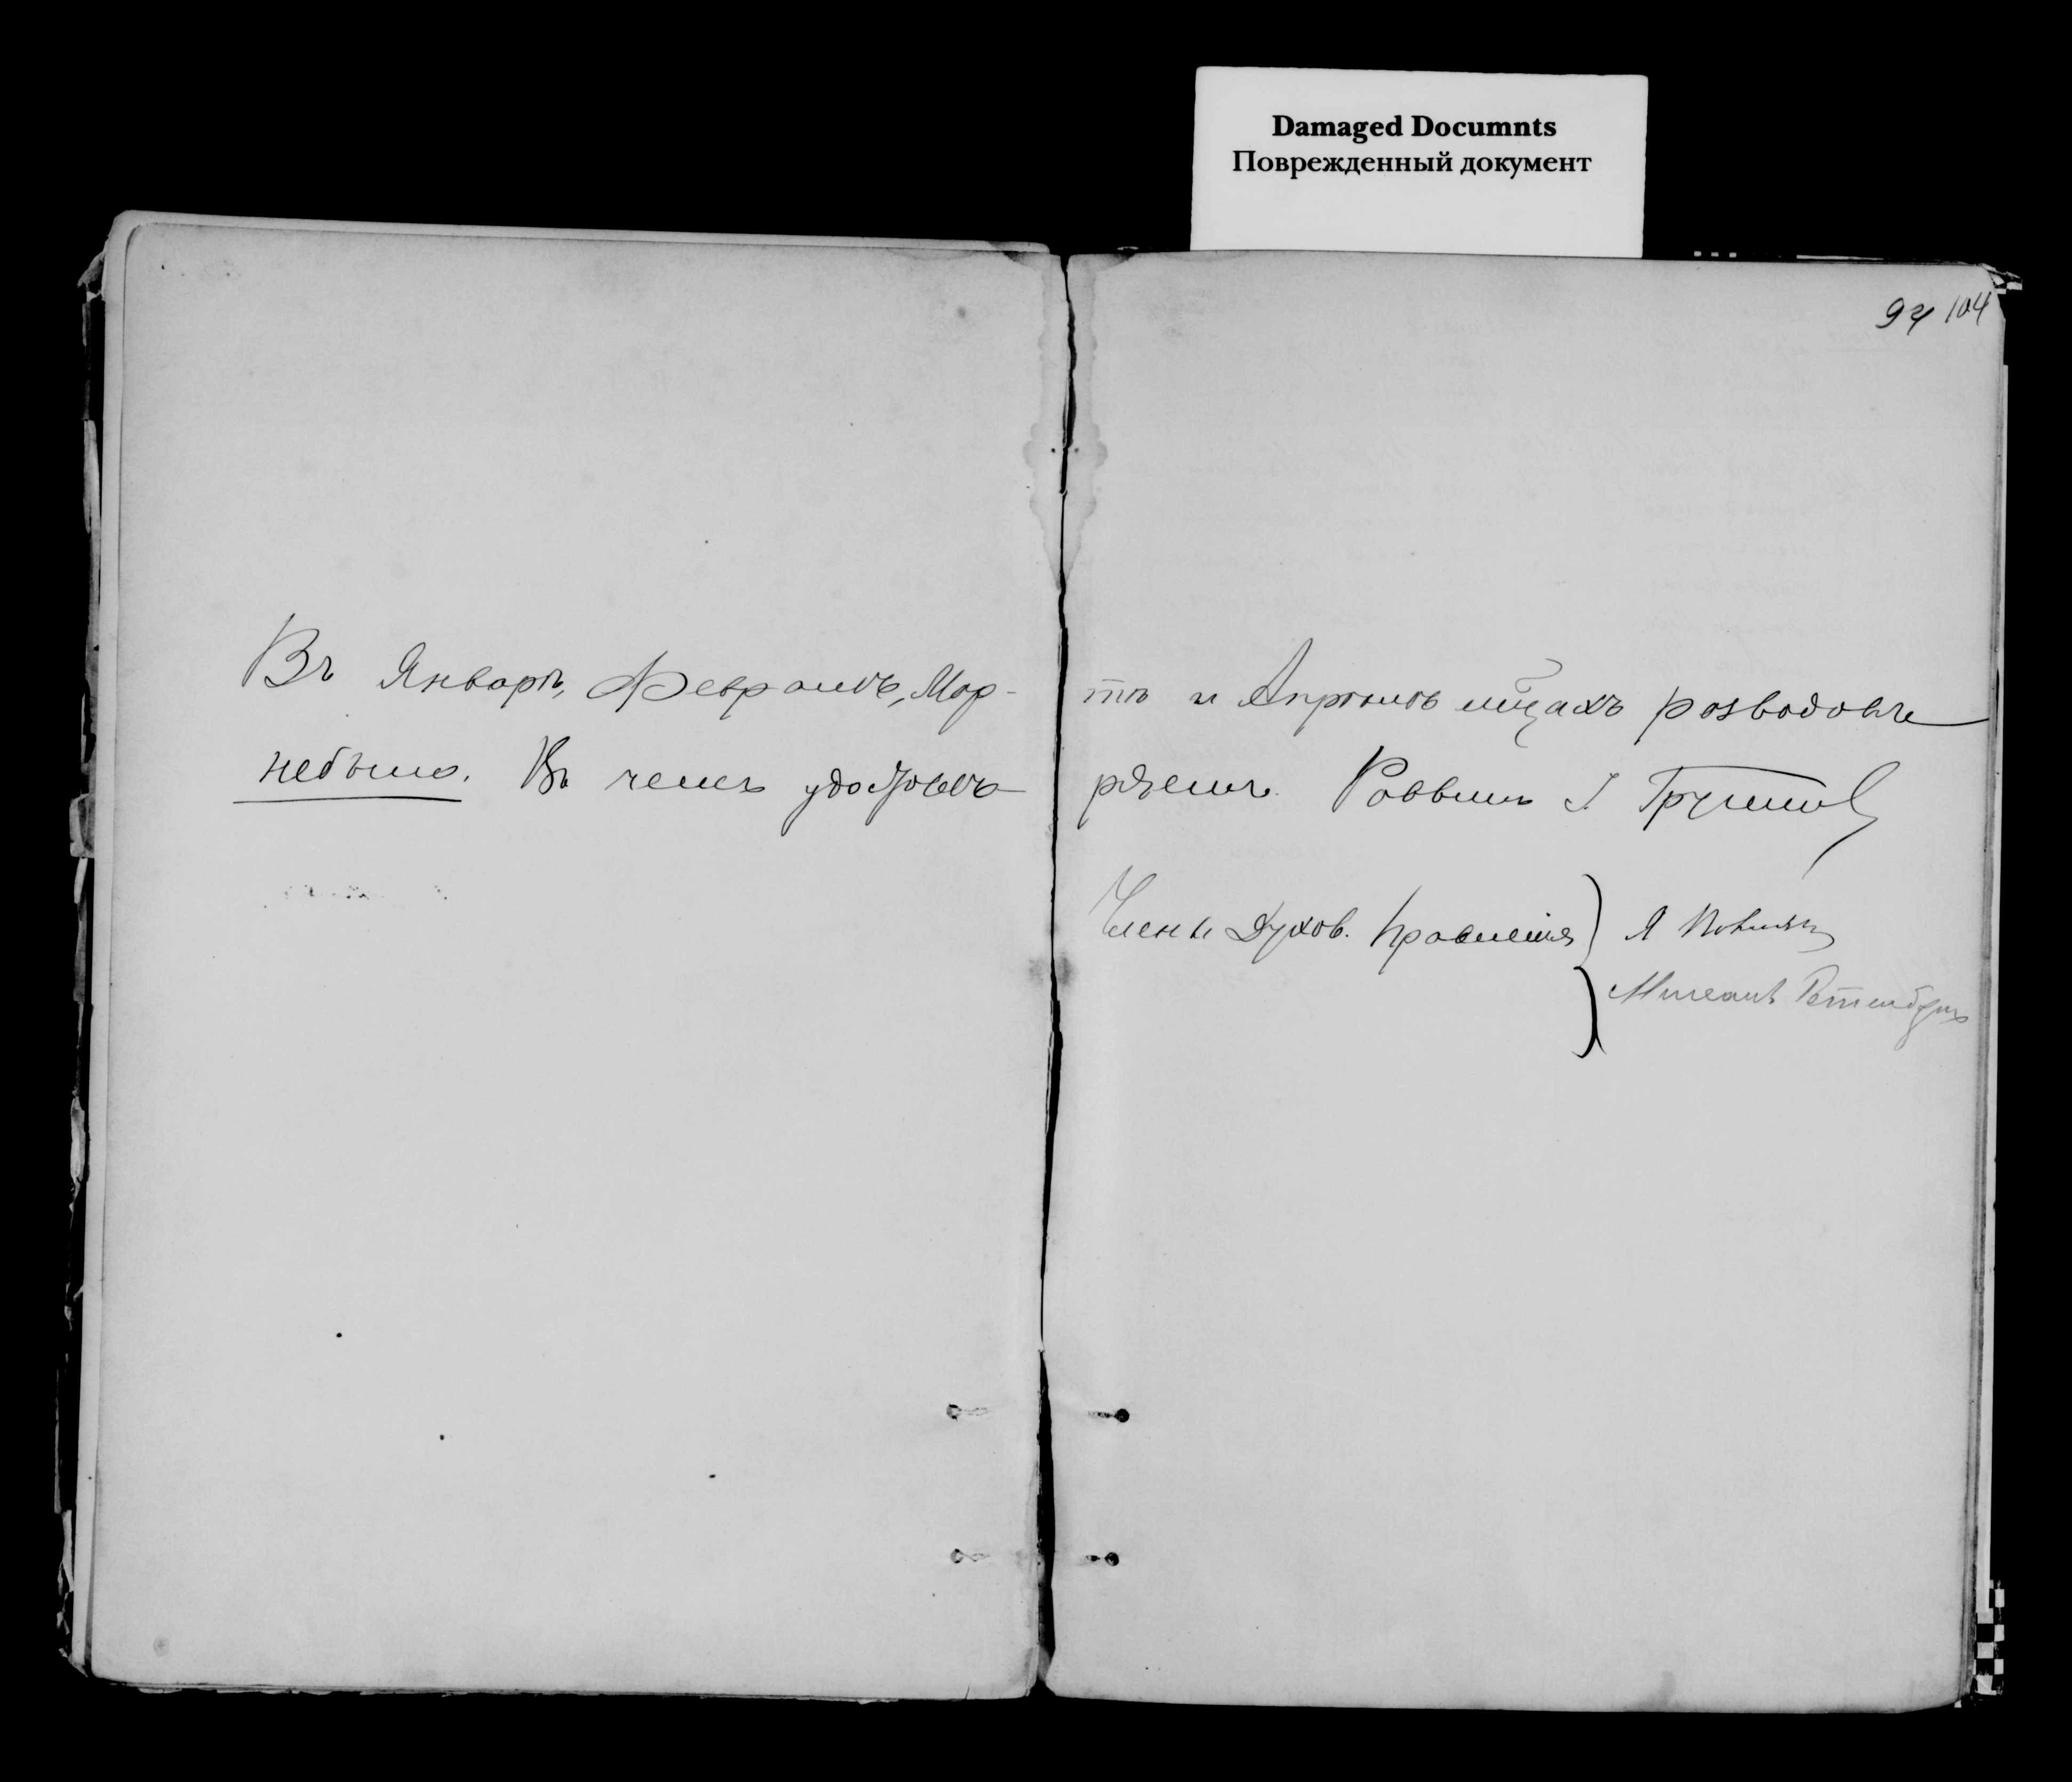 Damaged Documnts
Поврежденный документ
104
Въ Январѣ, Февралѣ, Мар-
тѣ и Апрѣлѣ мцахъ разводовъ не
небыло. Въ чемъ удостовѣ-
ряемъ. Раввинъ
Члены Духов. Правленія } Я
Михаилъ